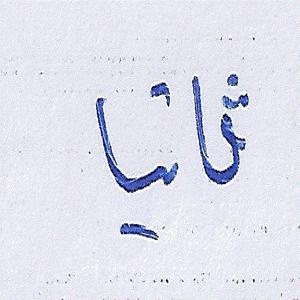 ثمانيا